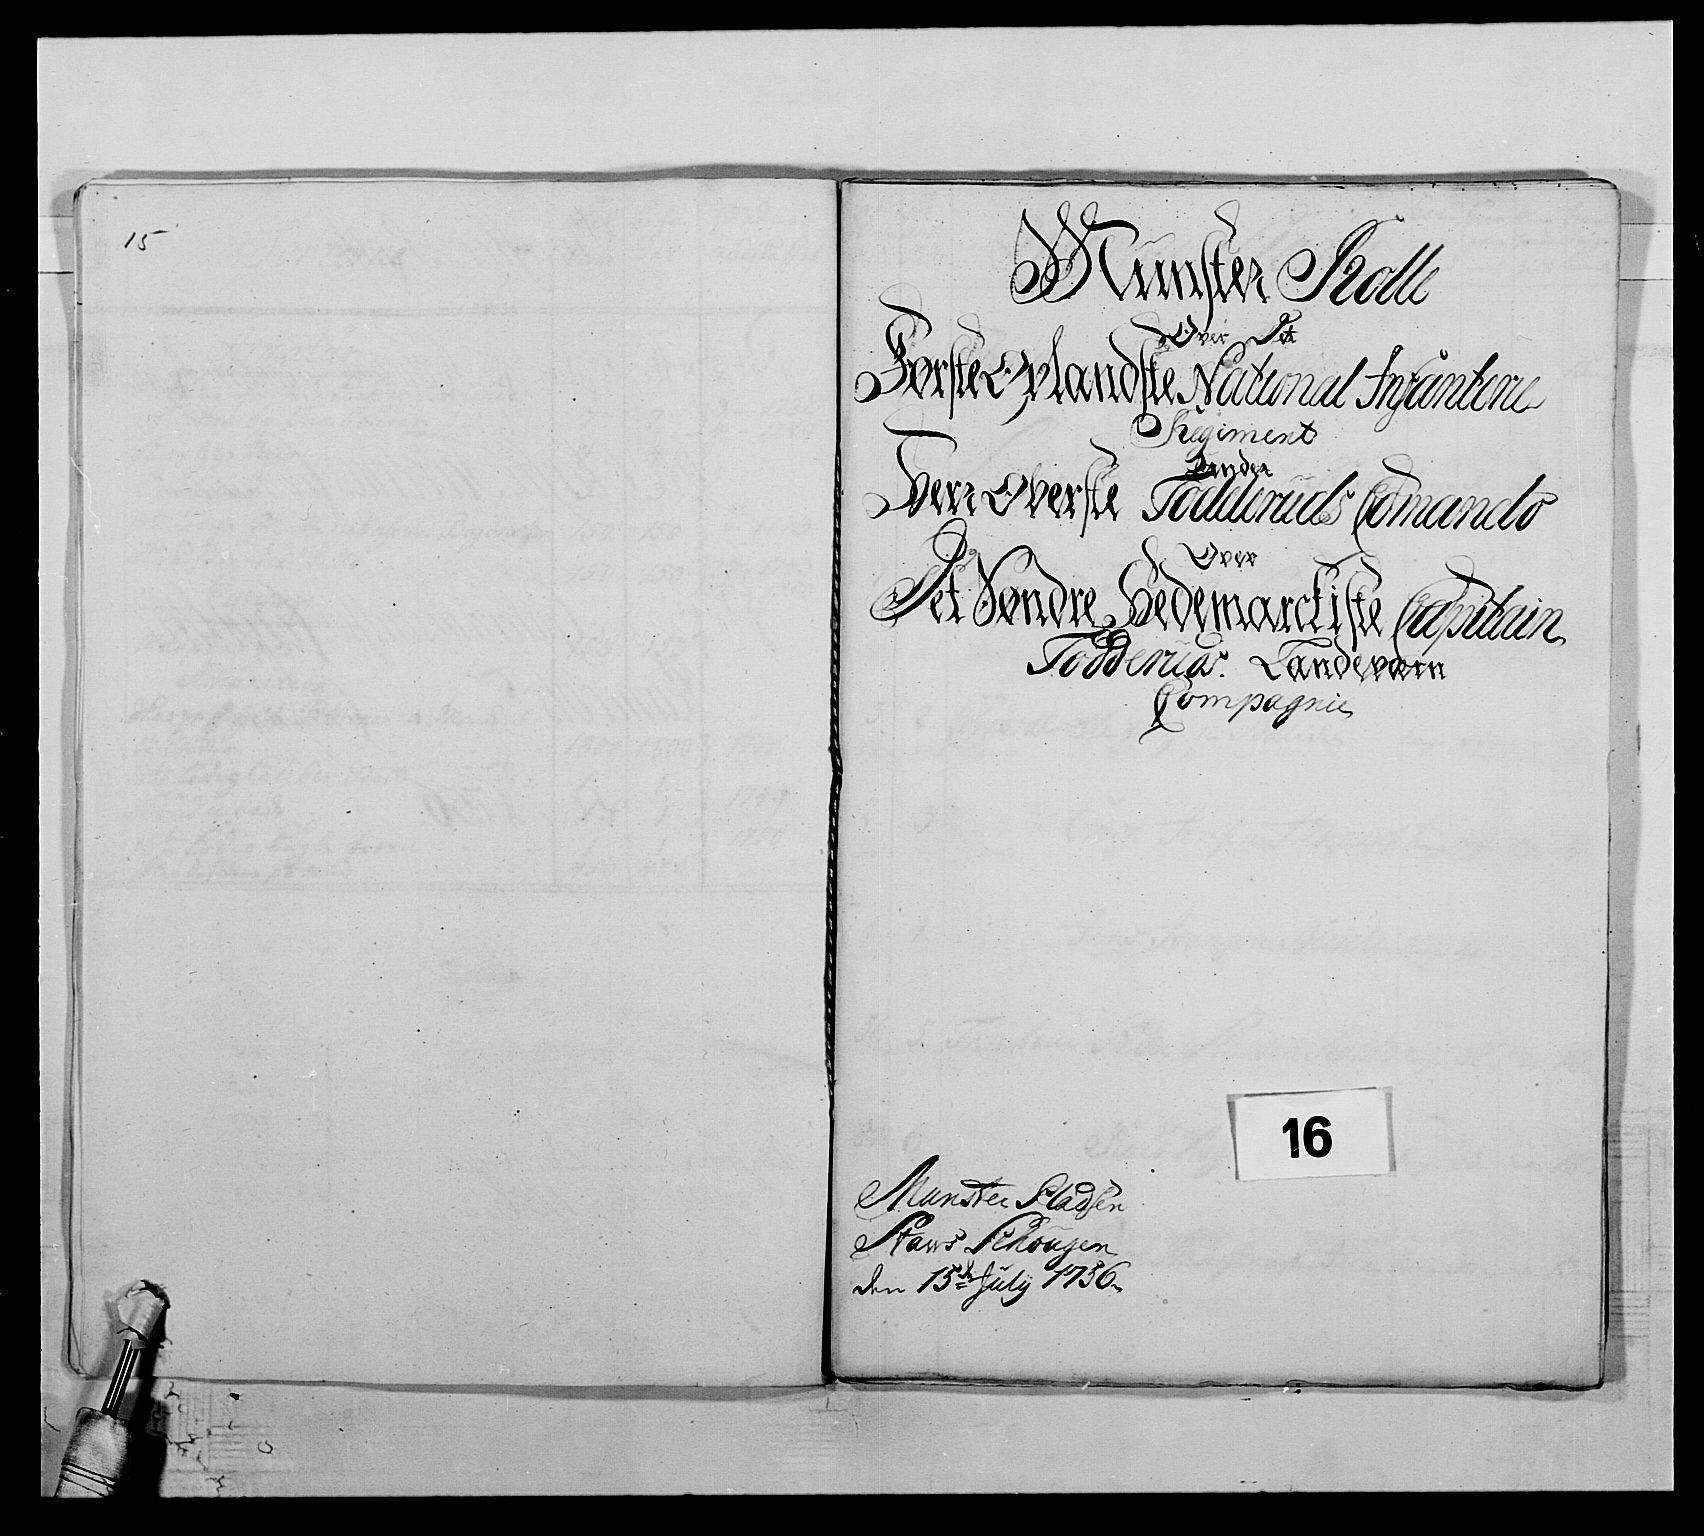 15
Munster Rolle
Over Det
Første Oplandske National Infanterie
Regiment
Under
Herr Oberste Todderuds Comando
Over
Det Søndre Hedemarckiske Capitain
Todderuds Landeværn
Compagnie
16
Munster Pladsen
Stavs Schougen
den 15de July 1756